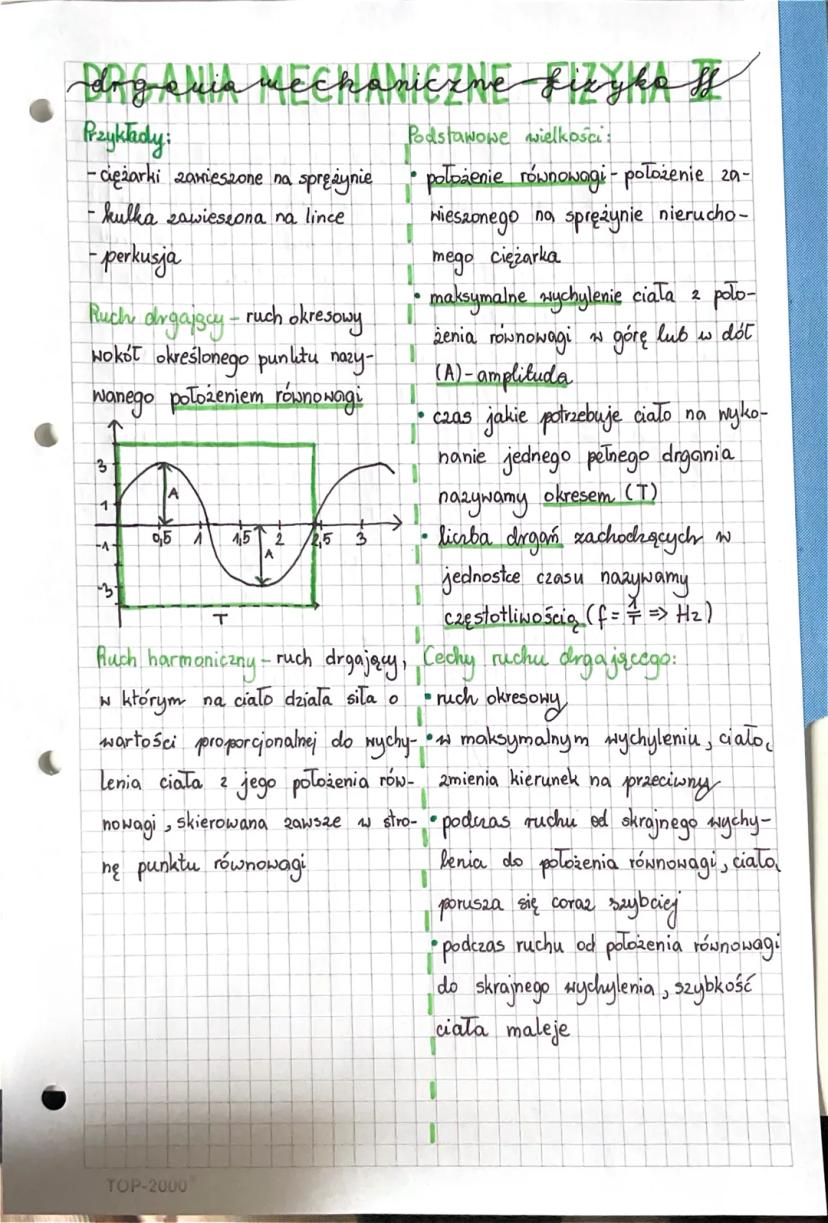 DRGANIA MECHANICZNE-FIZYKA II
drgania mechaniczne-fizyka II
Przykłady:
- ciężarki zawieszone na sprężynie
- kulka zawieszona na lince
- perkusja
Ruch drgający - ruch okresowy
wokół określonego punktu nazy-
wanego położeniem równowagi
3
A
1
0,5 1 1,5 2 2,5 3
-1
A
-3
T
Ruch harmoniczny - ruch drgający,
w którym na ciało działa siła o
wartości proporcjonalnej do wychy-
lenia ciała z jego położenia rów-
nowagi, skierowana zawsze w stro-
nę punktu równowagi
Podstawowe wielkości:
• położenie równowagi - położenie za-
wieszonego na sprężynie nierucho-
mego ciężarka
• maksymalne wychylenie ciała z poło-
żenia równowagi w górę lub w dół
(A) - amplituda
• czas jakie potrzebuje ciało na wyko-
nanie jednego pełnego drgania
nazywamy okresem (T)
• liczba drgań zachodzących w
jednostce czasu nazywamy
częstotliwością (f = 1/T => Hz)
Cechy ruchu drgającego:
• ruch okresowy
• w maksymalnym wychyleniu, ciało
zmienia kierunek na przeciwny
• podczas ruchu od skrajnego wychy-
lenia do położenia równowagi, ciało
porusza się coraz szybciej
• podczas ruchu od położenia równowagi
do skrajnego wychylenia, szybkość
ciała maleje
TOP-2000